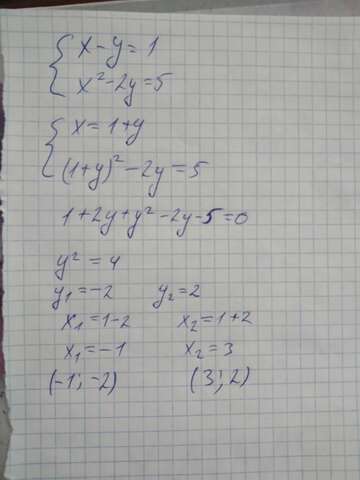 x - y = 1
x² - 2y = 5
x = 1 + y
(1+y)² - 2y = 5
1 + 2y + y² - 2y - 5 = 0
y² = 4
y₁ = -2 y₂ = 2
x₁ = 1 - 2 x₂ = 1 + 2
x₁ = -1 x₂ = 3
(-1; -2) (3; 2)